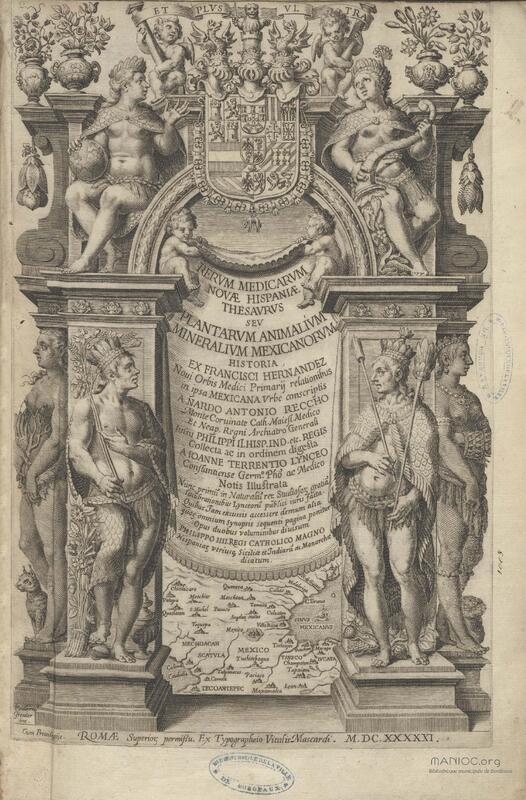 ET PLVS VL TRA
RERVM MEDICARVM
NOVÆ HISPANIÆ
THESAVRVS
SEV
PLANTARVM ANIMALIVM
MINERALIVM MEXICANORVM
HISTORIA
EX FRANCISCI HERNANDEZ
Noui Orbis Medici Primarij relationibus
in ipsa MEXICANA Vrbe conscriptis
A NARDO ANTONIO RECCHO
Monte Coruinate Cath. Maiest. Medico
Et Neap. Regni Archiatro Generali
Iussu PHILIPPI II. HISP. IND. etc. REGIS
Collecta ac in ordinem digesta
A IOANNE TERRENTIO LYNCEO
Constantiense Germ.º Phõ ac Medico
Notis Illustrata
Nunc primũ in Naturaliũ rer. Studiosor. gratiã
lucubrationibus Lynceorũ publici iuris facta.
Quibus Iam excussis accessere demum alia
quor. omnium Synopsis sequenti pagina ponitur
Opus duobus voluminibus diuisum
PHILIPPO IIII. REGI CATHOLICO MAGNO
Hispaniar. vtriusq. Siciliæ et Indiarũ etc. Monarchæ
dicatum.
Quinera
MECHOACAN
MEXICO
MEXICANVS
IVCATA
TECOANTEPEC
Cum Priuilegijs.
ROMÆ Superior. permissu. Ex Typographeio Vitalis Mascardi. M.DC.XXXXXI.
BORDEAUX
MANIOC.org
Bibliothèque municipale de Bordeaux